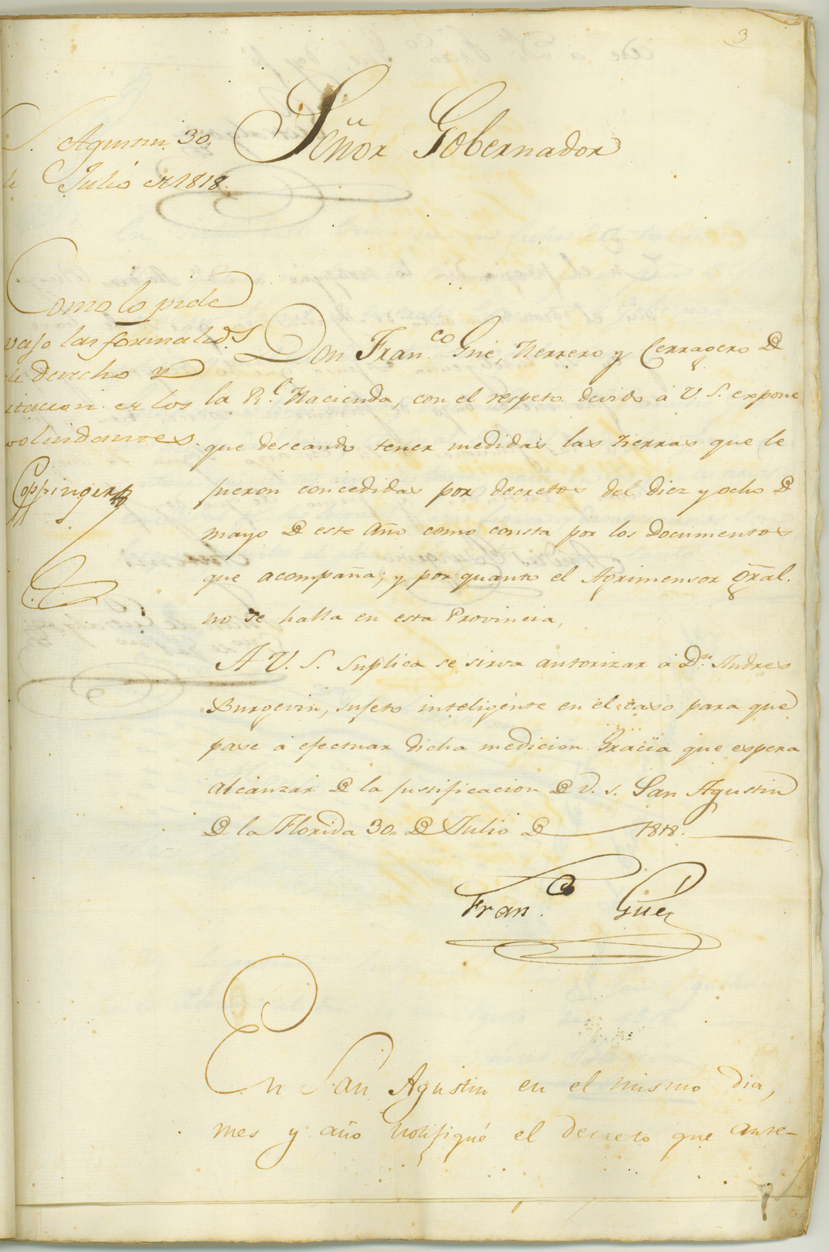 3
Señor Gobernador
S. Agustin 30.
de Julio de 1818.
Como lo pide
vajo las formalids.
de derecho y
citacion de los
colindantes.
Coppinger
Don Fran.co Gué, Herrero y Cerragero D
la Rl. Hacienda, con el respeto devido á V. S. expone
que deseando tener medidas las tierras que le
fueron concedidas por decretos del diez y ocho D
mayo D este año como consta por los documentos
que acompaña; y por quanto el Agrimensor Gral.
no se halla en esta Provincia,
A V. S. Suplica se sirva autorizar á Dn. Andres
Burgevin, sujeto inteligente en el caso para que
pase á efectuar dicha medicion. Gracia que espera
alcanzar D la justificacion D V. S. San Agustin
D la Florida 30. D Julio D 1818.
Fran.co Gué
En San Agustin en el mismo dia,
mes y año notifiqué el decreto que ante-